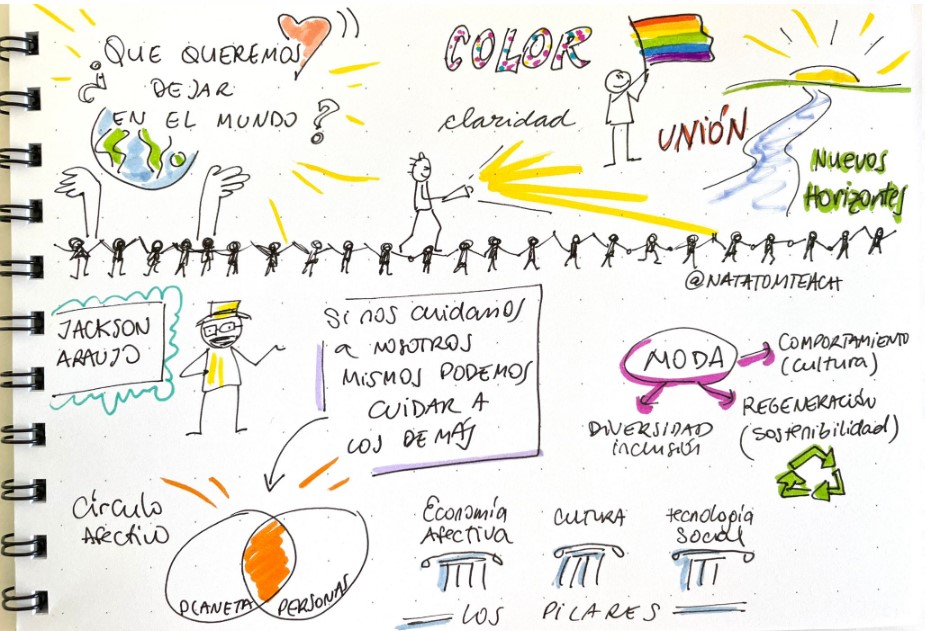 ¿QUE QUEREMOS
DEJAR
EN EL MUNDO?
COLOR
claridad
UNIÓN
Nuevos
Horizontes
@NATATOMTEACH
JACKSON
ARAUJO
Si nos cuidamos
a NOSOTROS
MISMOS PODEMOS
CUIDAR A
LOS DEMÁS
MODA
COMPORTAMIENTO
(cultura)
REGENERACIÓN
(sostenibilidad)
DIVERSIDAD
inclusión
Círculo
Afectivo
PLANETA
PERSONAS
Economía
Afectiva
CULTURA
tecnología
Social
LOS PILARES